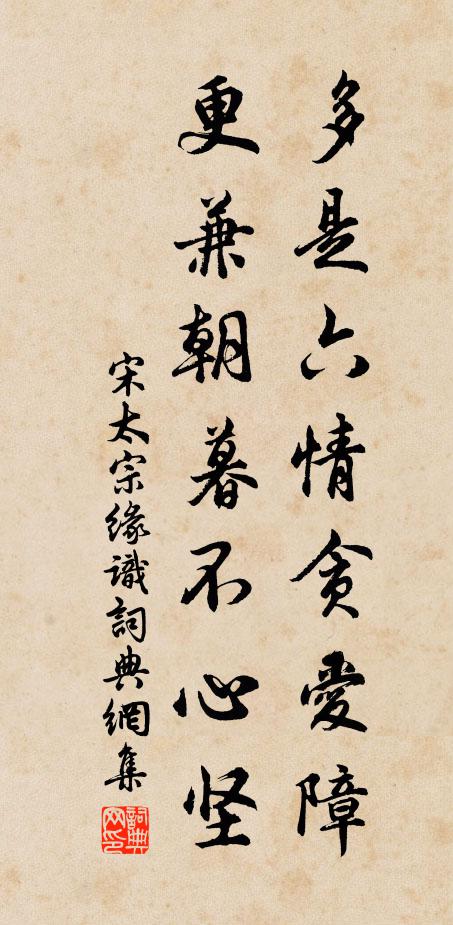 多是六情貪愛障
更兼朝暮不心坚
宋太宗緣識詞典網集
詞典网印